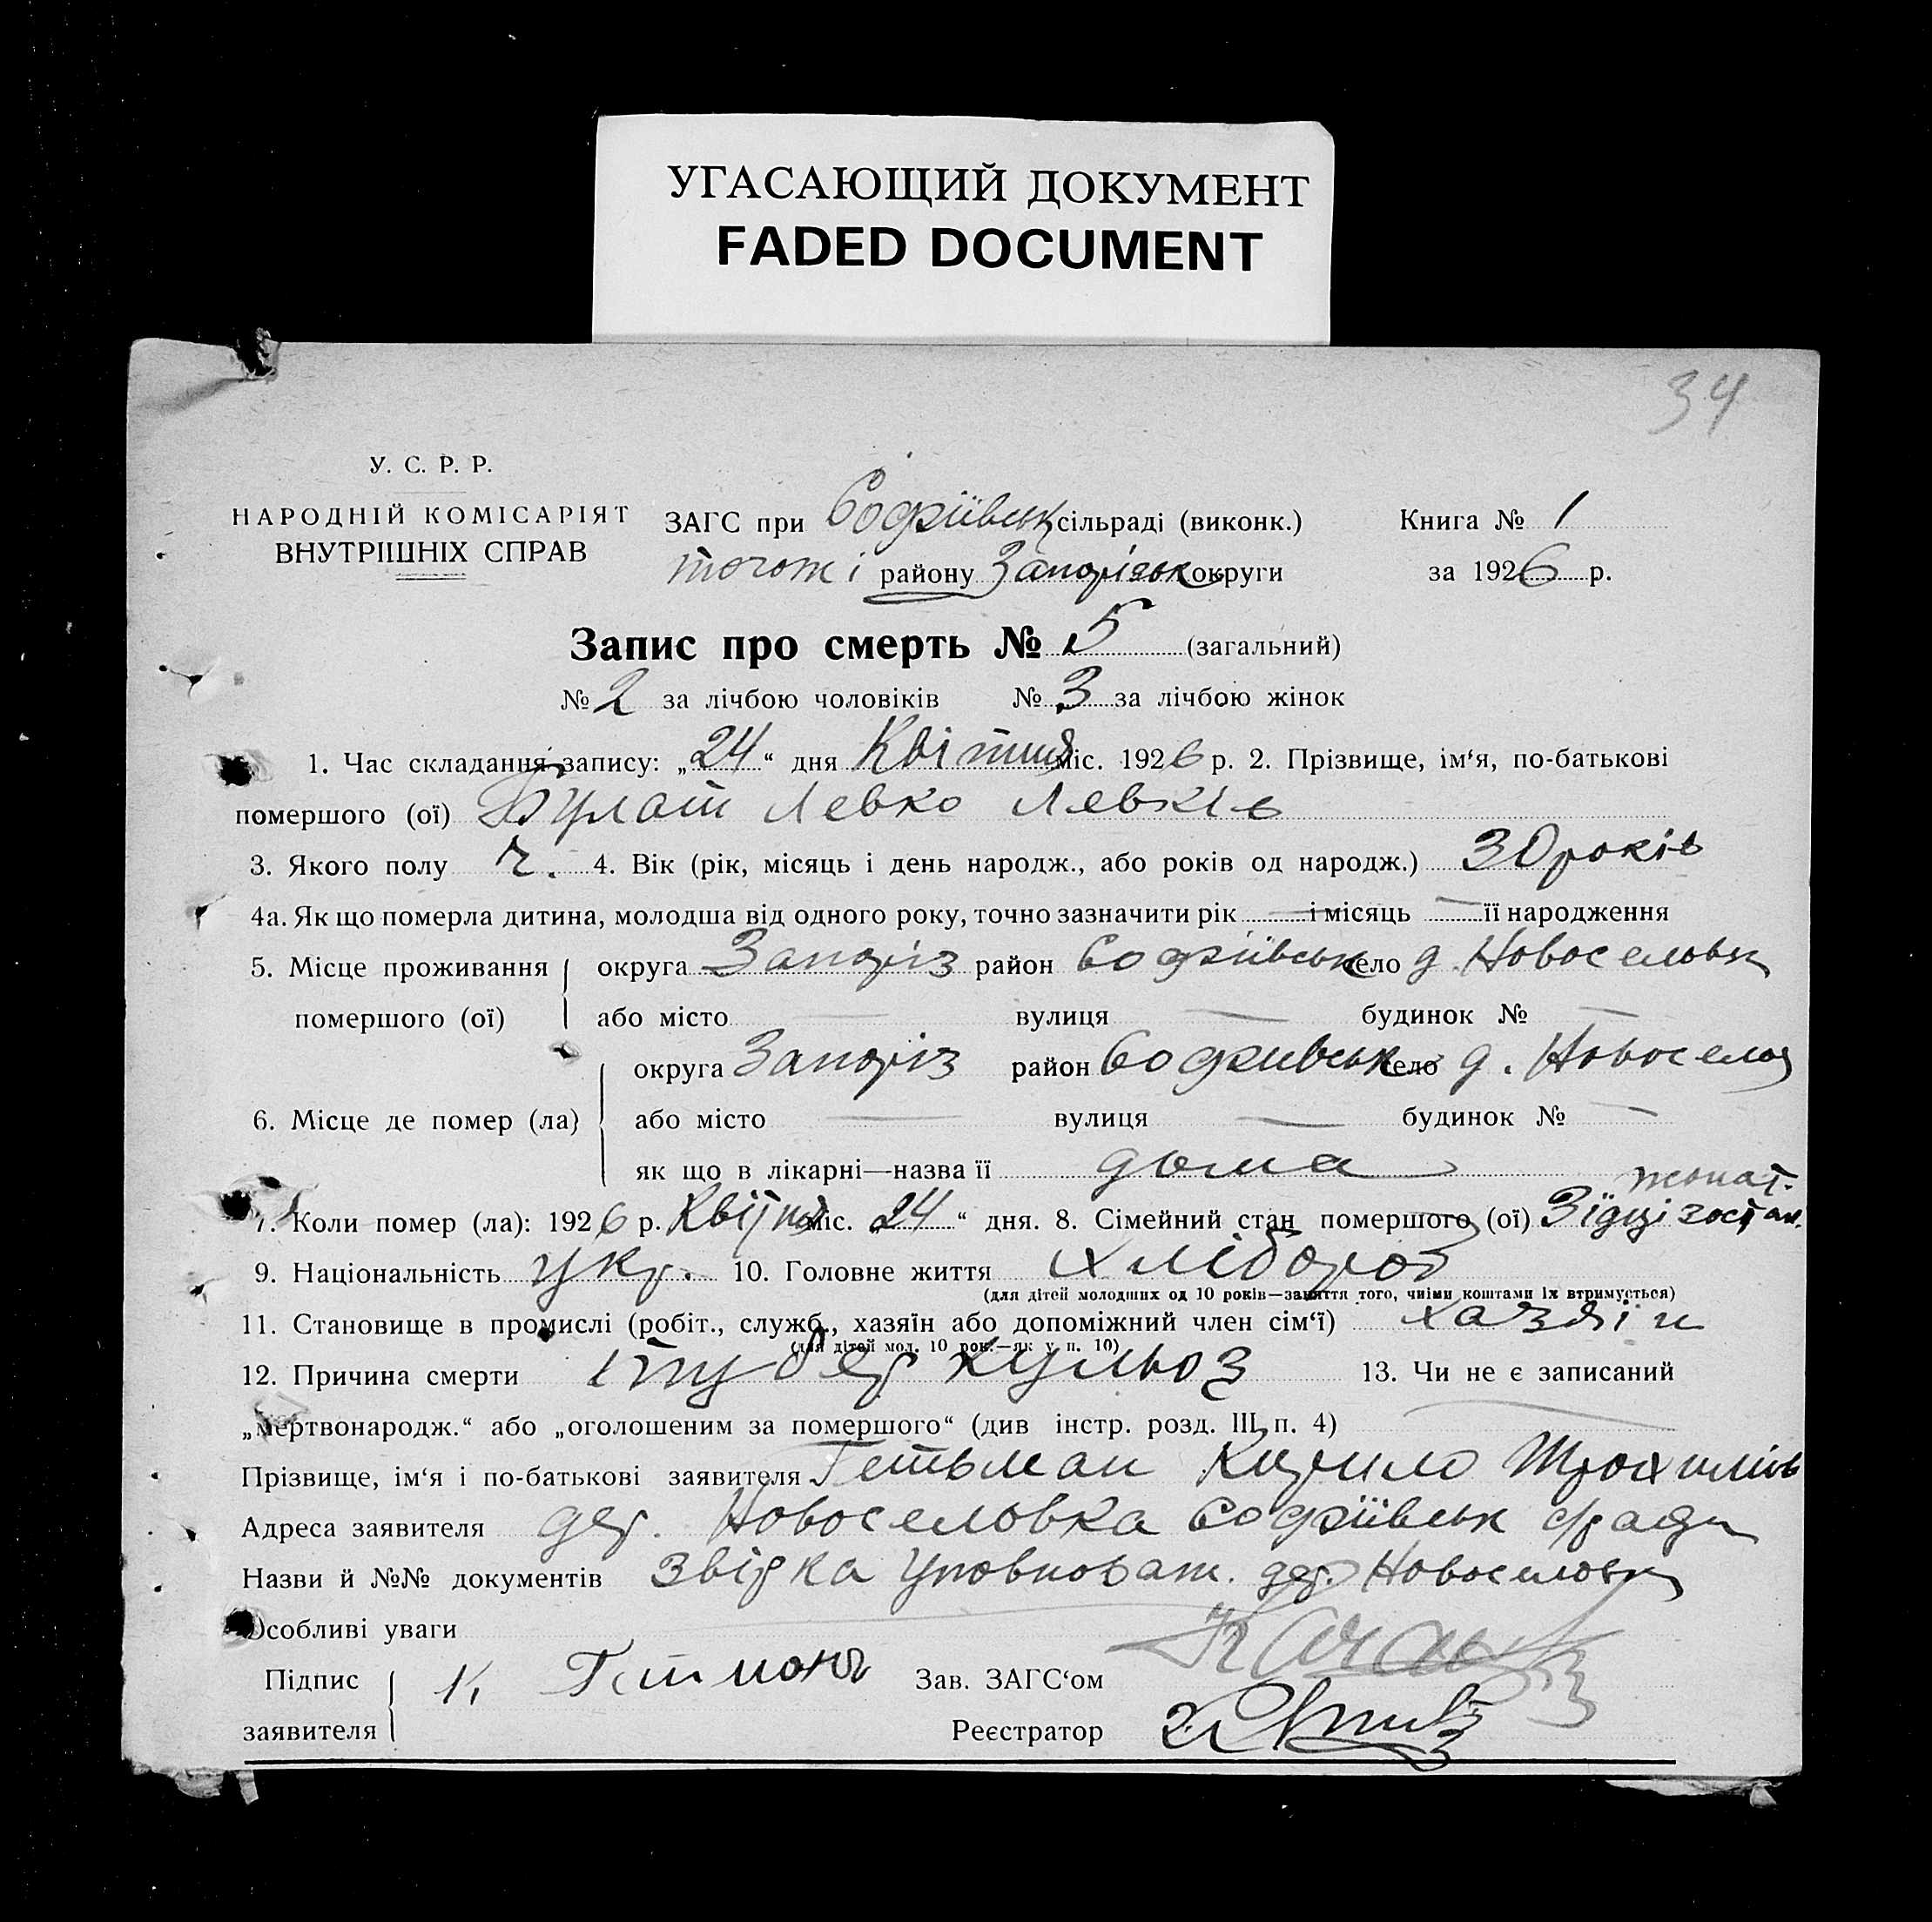 УГАСАЮЩИЙ ДОКУМЕНТ
FADED DOCUMENT
34
У. С. Р. Р.
НАРОДНІЙ КОМІСАРІЯТ
ВНУТРІШНІХ СПРАВ
ЗАГС при Софіївськ сільраді (виконк.)
тогож і району Запорізьк округи
Книга № 1
за 1926 р.
Запис про смерть № 5 (загальний)
№ 2 за лічбою чоловіків № 3 за лічбою жінок
1. Час складання запису: „24“ дня Квітня міс. 1926 р. 2. Прізвище, ім‘я, по-батькові
помершого (ої) Булат Левко Левків
3. Якого полу ч. 4. Вік (рік, місяць і день народж., або років од народж.) 30 років
4а. Як що померла дитина, молодша від одного року, точно зазначити рік — і місяць — її народження
5. Місце проживання округа Запоріз район Софіївськ село д. Новоселовк
помершого (ої) або місто — вулиця — будинок № —
округа Запоріз район Софиивськ село д. Новосело
6. Місце де помер (ла) або місто — вулиця — будинок № —
як що в лікарні—назва її дома
жонат.
7. Коли помер (ла): 1926 р. Квітня міс. „24“ дня. 8. Сімейний стан помершого (ої)
9. Національність укр. 10. Головне життя хлібороб
(для дітей молодших од 10 років—заняття того, чиїми коштами їх втримується)
11. Становище в промислі (робіт., служб., хазяїн або допоміжний член сім‘ї) хазяїн
(для дітей мол. 10 рок.—як у п. 10)
12. Причина смерти туберкульоз 13. Чи не є записаний
„мертвонародж.“ або „оголошеним за помершого“ (див інстр. розд. III п. 4)
Прізвище, ім‘я і по-батькові заявителя Гетьман Кирило Трохимів
Адреса заявителя дер. Новоселовка Софіївськ с/ради
Назви й №№ документів Звідка Уповноваж. дер. Новоселовк
Особливі уваги
Підпис К. Гетмонь Зав. ЗАГС‘ом
заявителя Реєстратор